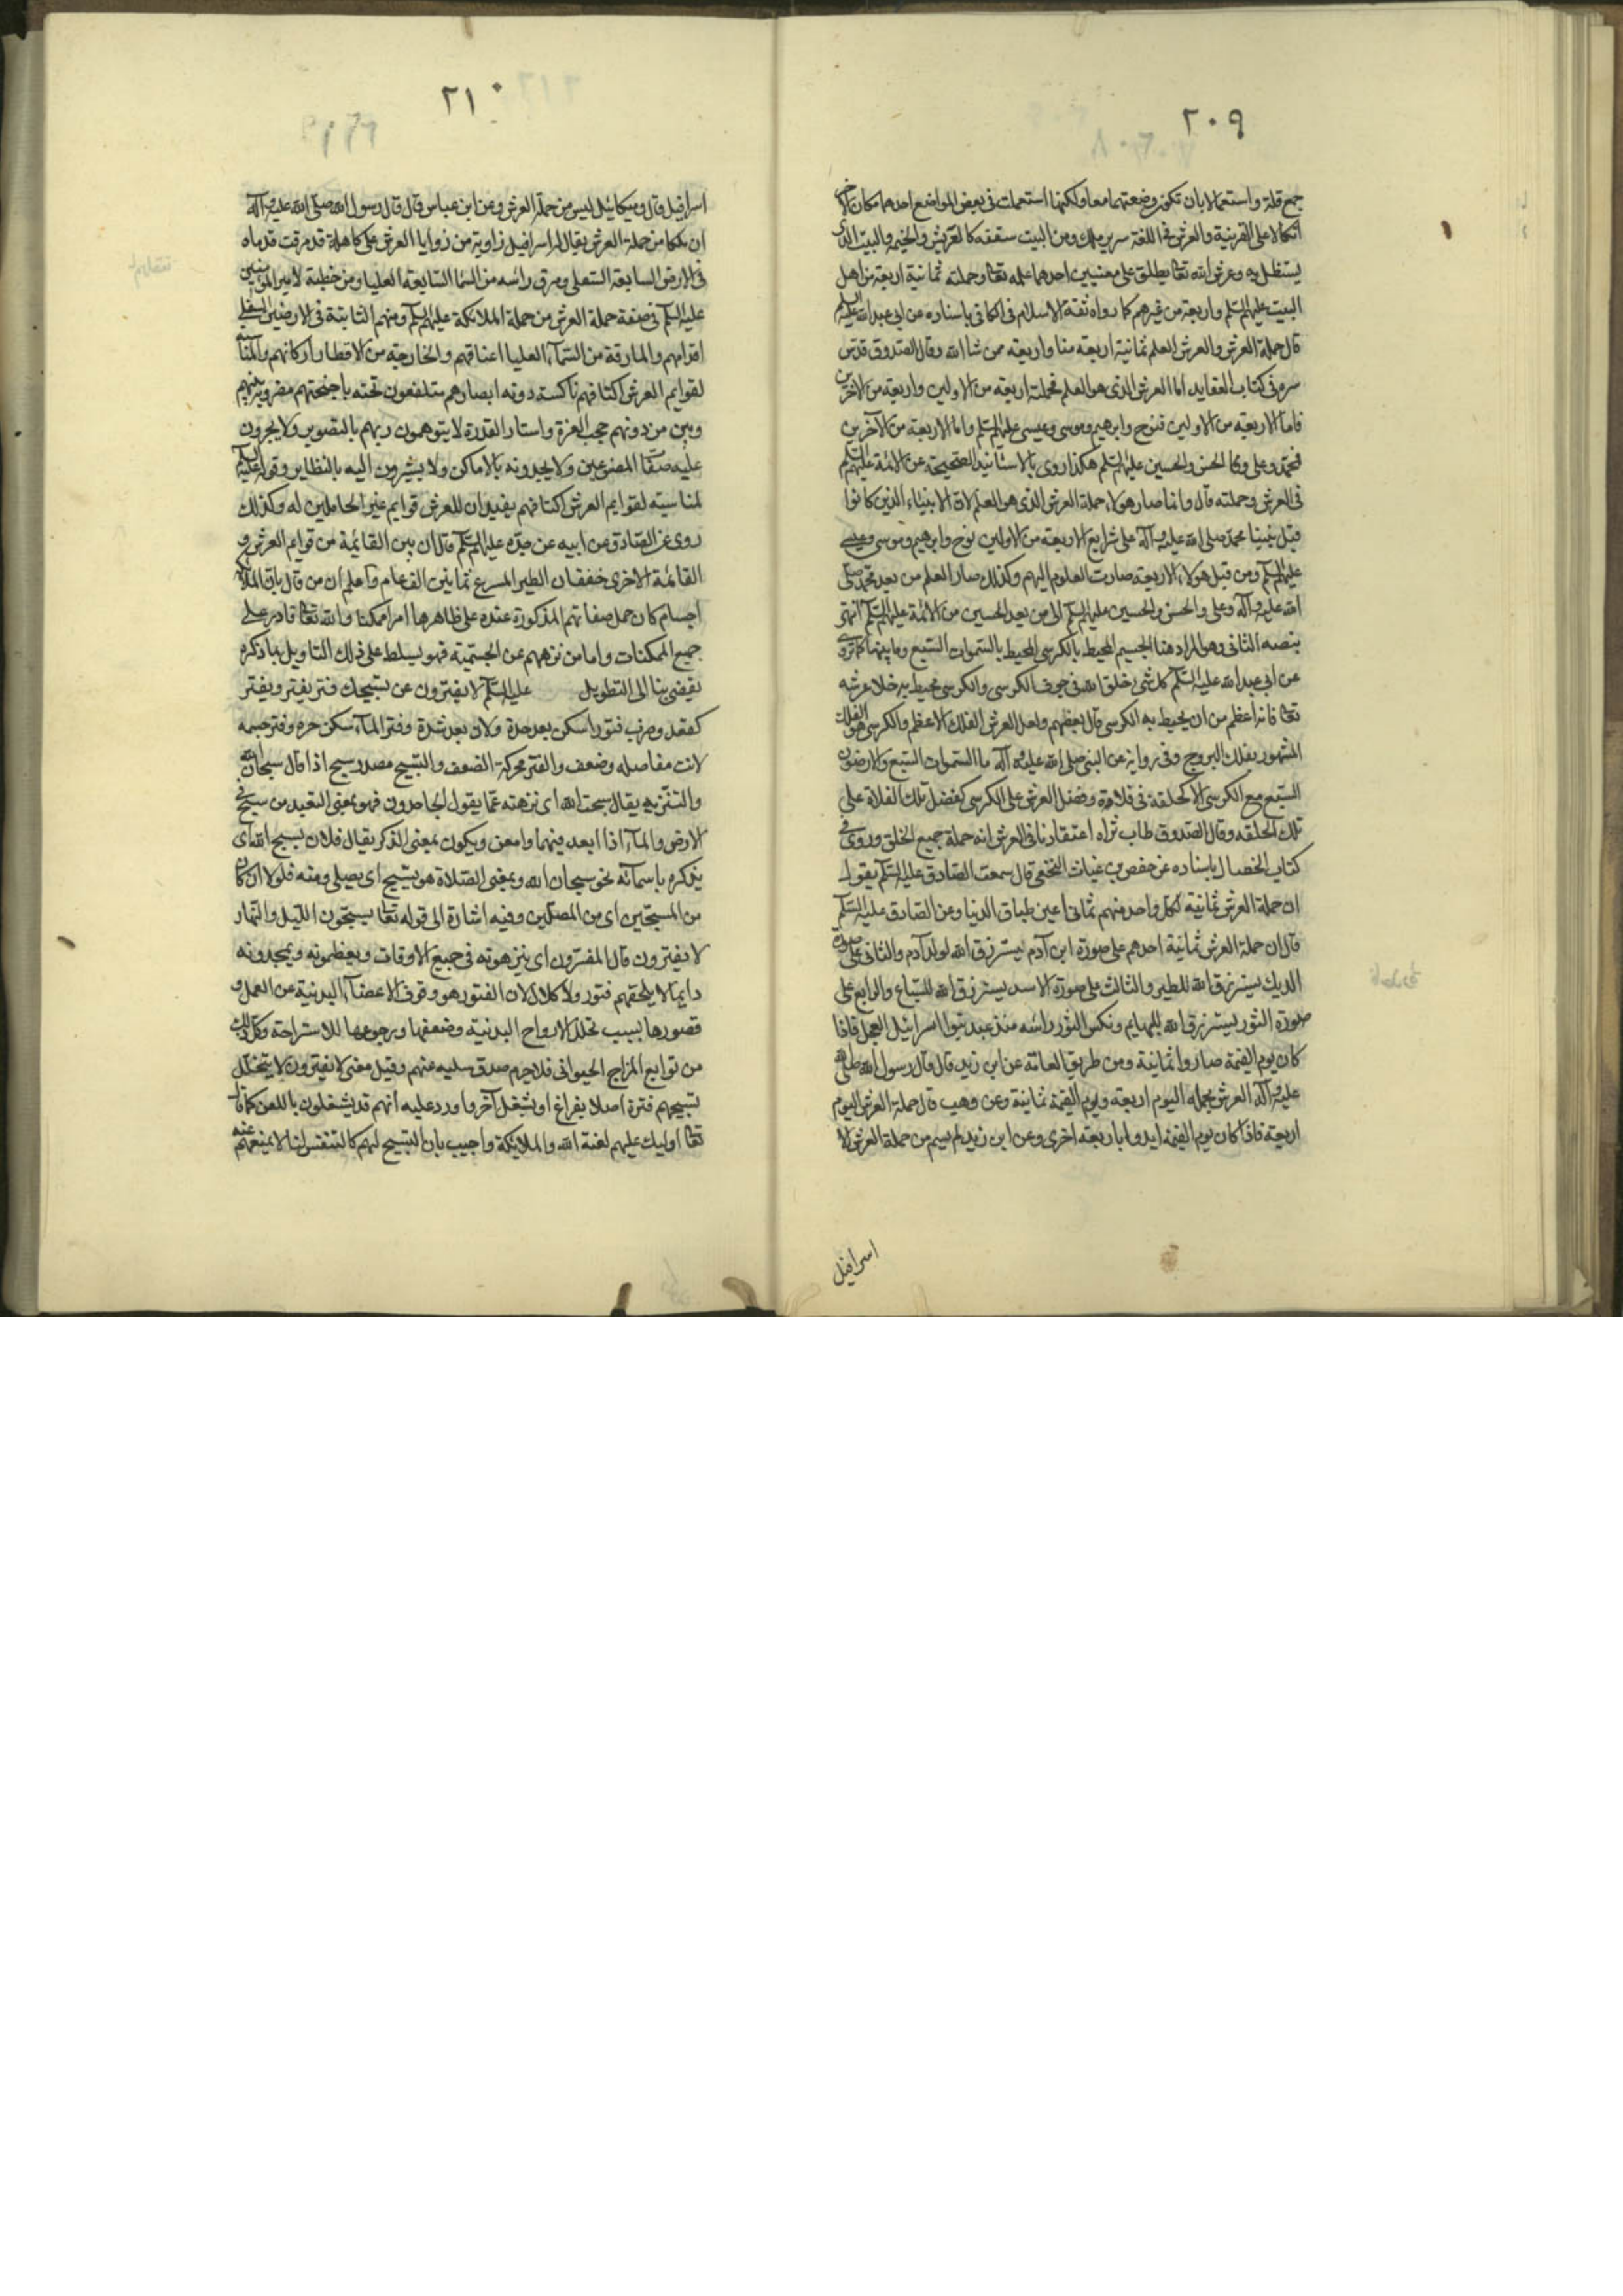 ٢٠٩
جمع قلة واستعمالا بان تكون وضعتهما معا ولكنها استعملت فى بعض المواضع احدهما مكان الاخر
اتكالا على القرينة والعرش فى اللغة سرير ملك ومن البيت سقفه كالعريش والخيمه والبيت الذى
يستظل به وعرش الله تعالى يطلق على معنيين احدهما علمه تعالى وحملته ثمانية اربعة من اهل
البيت عليهم السلم واربعة من غيرهم كما رواه ثقة الاسلام فى الكافى باسناده عن ابى عبد الله عليه السلم
قال حملة العرش والعرش العلم ثمانية اربعة منا واربعة ممن شا الله وقال الصدوق قدس
سره فى كتاب العقايد اما العرش الذى هو العلم فحملته اربعة من الاولين واربعة من الاخرين
فاما الاربعة من الاولين فنوح وابرهيم وموسى وعيسى عليهم السلم واما الاربعة من الآخرين
فمحمد وعلى والحسن والحسين عليهم السلم هكذا روى بالاسانيد الصحيحة عن الائمة عليهم السلم
فى العرش وحملته قال وانما صار هولاء حملة العرش الذى هو العلم لان الانبياء الذين كانوا
قبل نبينا محمد صلى الله عليه وآله على شرايع الاربعة من الاولين نوح وابرهيم وموسى وعيسى
عليهم السلم ومن قبل هولاء الاربعة صارت العلوم اليهم وكذلك صار العلم من بعد محمد صلى
الله عليه وآله وعلى والحسن والحسين عليهم السلم الى من بعد الحسين من الائمة عليهم السلم انتهى
بنصه الثانى وهو المراد هنا الجسيم المحيط بالكرسى المحيط بالسموات السبع وما بينهما كما روى
عن ابى عبد الله عليه السلم كل شى خلق الله فى جوف الكرسى والكرسى محيط به خلا عرشه
تعالى فانه اعظم من ان يحيط به الكرسى قال بعضهم ولعل العرش الفلك الاعظم والكرسى هو الفلك
المشهور بفلك البروج وفى رواية عن النبى صلى الله عليه وآله ما السموات السبع والارضون
السبع مع الكرسى الا كحلقة فى فلاة وفضل العرش على الكرسى كفضل تلك الفلاة على
تلك الحلقه وقال الصدوق طاب ثراه اعتقادنا فى العرش انه حملة جميع الخلق وروى فى
كتاب الخصال باسناده عن حفص بن غياث النخعى قال سمعت الصادق عليه السلم يقول
ان حملة العرش ثمانية لكل واحد منهم ثمانى اعين طباق الدنيا وعن الصادق عليه السلم
قال ان حملة العرش ثمانية احدهم على صورة ابن آدم يسترزق الله لولد آدم والثانى على صورة
الديك يسترزق الله للطير والثالث على صورة الاسد يسترزق الله للسباع والرابع على
صورة الثور يسترزق الله للبهايم ونكس الثور راسه منذ عبد بنوا اسرائيل العجل فاذا
كان يوم القيمة صاروا ثمانية ومن طريق العامة عن ابن زيد قال قال رسول الله صلى الله
عليه وآله العرش يحمله اليوم اربعة ويوم القيمة ثمانية وعن وهب قال حملة العرش اليوم
اربعة فاذا كان يوم القيمة ايدوا باربعة اخرى وعن ابن زيد لم يسم من حملة العرش الا
اسرافيل
٢١٠
اسرافيل قال وميكائيل ليس من حملة العرش وعن ابن عباس قال قال رسول الله صلى الله عليه وآله
ان ملكا من حملة العرش يقال له اسرافيل زاوية من زوايا العرش على كاهله قد مرقت قدماه
فى الارض السابعة السفلى ومرق راسه من السما السابعة العليا ومن خطبة لامير المومنين
عليه السلم فى صفة حملة العرش من حملة الملائكة عليهم السلم ومنهم الثابتة فى الارضين السفلى
اقدامهم والمارقة من السمآء العليا اعناقهم والخارجة من الاقطار اركانهم والمناسبة
لقوايم العرش اكتافهم ناكسة دونه ابصارهم متلفعون تحته باجنحتهم مضروبة بينهم
وبين من دونهم حجب العزة واستار القدرة لا يتوهمون ربهم بالتصوير ولا يجرون
عليه صفات المصنوعين ولا يحدونه بالاماكن ولا يشيرون اليه بالنظاير وقوله عليه السلم
لمناسبة لقوايم العرش اكتافهم يفيد ان للعرش قوايم غير الحاملين له وكذلك
روى عن الصادق عن ابيه عن جده عليهم السلم قال ان بين القائمة من قوايم العرش و
القائمة الاخرى خفقان الطير المسرع ثمانين الف عام واعلم ان من قال بان الملائكة
اجسام كان حمل صفاتهم المذكورة عنده على ظاهرها امرا ممكنا والله تعالى قادر على
جميع الممكنات واما من نزههم عن الجسمية فهو يسلط على ذلك التاويل بما ذكره
يفضى بنا الى التطويل عليه السلم لا يفترون عن تسبيحك فتر يفتر ويفتر
كقعد وضرب فتورا سكن بعد حدة ولان بعد شدة وفتر المآء سكن حره وفتر جسمه
لانت مفاصله وضعف والفتر محركة الضعف والتسبيح مصدر سبح اذا قال سبحان الله
والتنزيه يقال سبحت الله اى نزهته عما يقول الجاحدون فهو بمعنى التبعيد من سبح فى
الارض والمآء اذا ابعد فيهما وامعن ويكون بمعنى الذكر يقال فلان يسبح الله اى
يذكره باسمآئه نحو سبحان الله وبمعنى الصلاة هو يسبح اى يصلى ومنه فلولا انه كان
من المسبحين اى من المصلين وفيه اشارة الى قوله تعالى يسبحون الليل والنهار
لا يفترون قال المفسرون اى ينزهونه فى جميع الاوقات ويعظمونه ويمجدونه
دايما لا يلحقهم فتور ولا كلال لان الفتور هو وقوف الاعضآء البدنية عن العمل و
قصورها بسبب تحلل الارواح البدنية وضعفها ورجوعها للاستراحة وكل ذلك
من توابع المزاج الحيوانى فلا جرم صدق سلبه عنهم وقيل معنى لا يفترون لا يتخلل
تسبيحهم فترة اصلا بفراغ او بشغل آخر واورد عليه انهم قد يشغلون باللعن كما قال
تعالى اوليك عليهم لعنة الله والملائكة واجيب بان التسبيح لهم كالتنفس لنا لا يمنعهم عنه